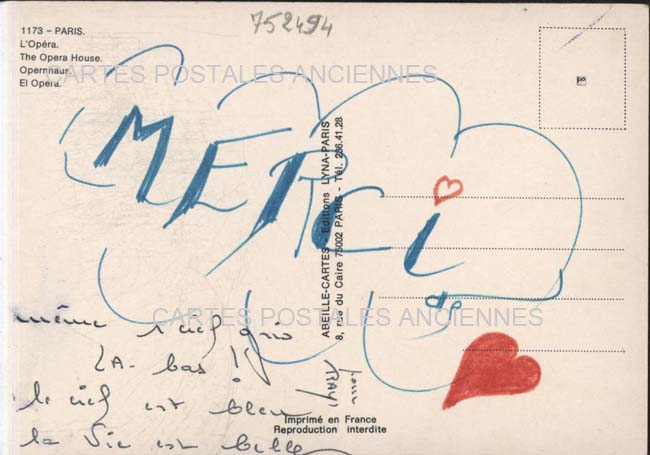 752494
1173 - PARIS.
L'Opéra.
The Opera House.
Opernhaus.
El Opera.
CARTES POSTALES ANCIENNES
MERCI
de
ABEILLE-CARTES - Editions LYNA-PARIS
8, rue du Caire 75002 PARIS - Tél. 236.41.28
CARTES POSTALES ANCIENNES
même 1 ciel gris
LA-bas !!
le ciel est bleu
la Vie est belle
Imprimé en France
Reproduction interdite